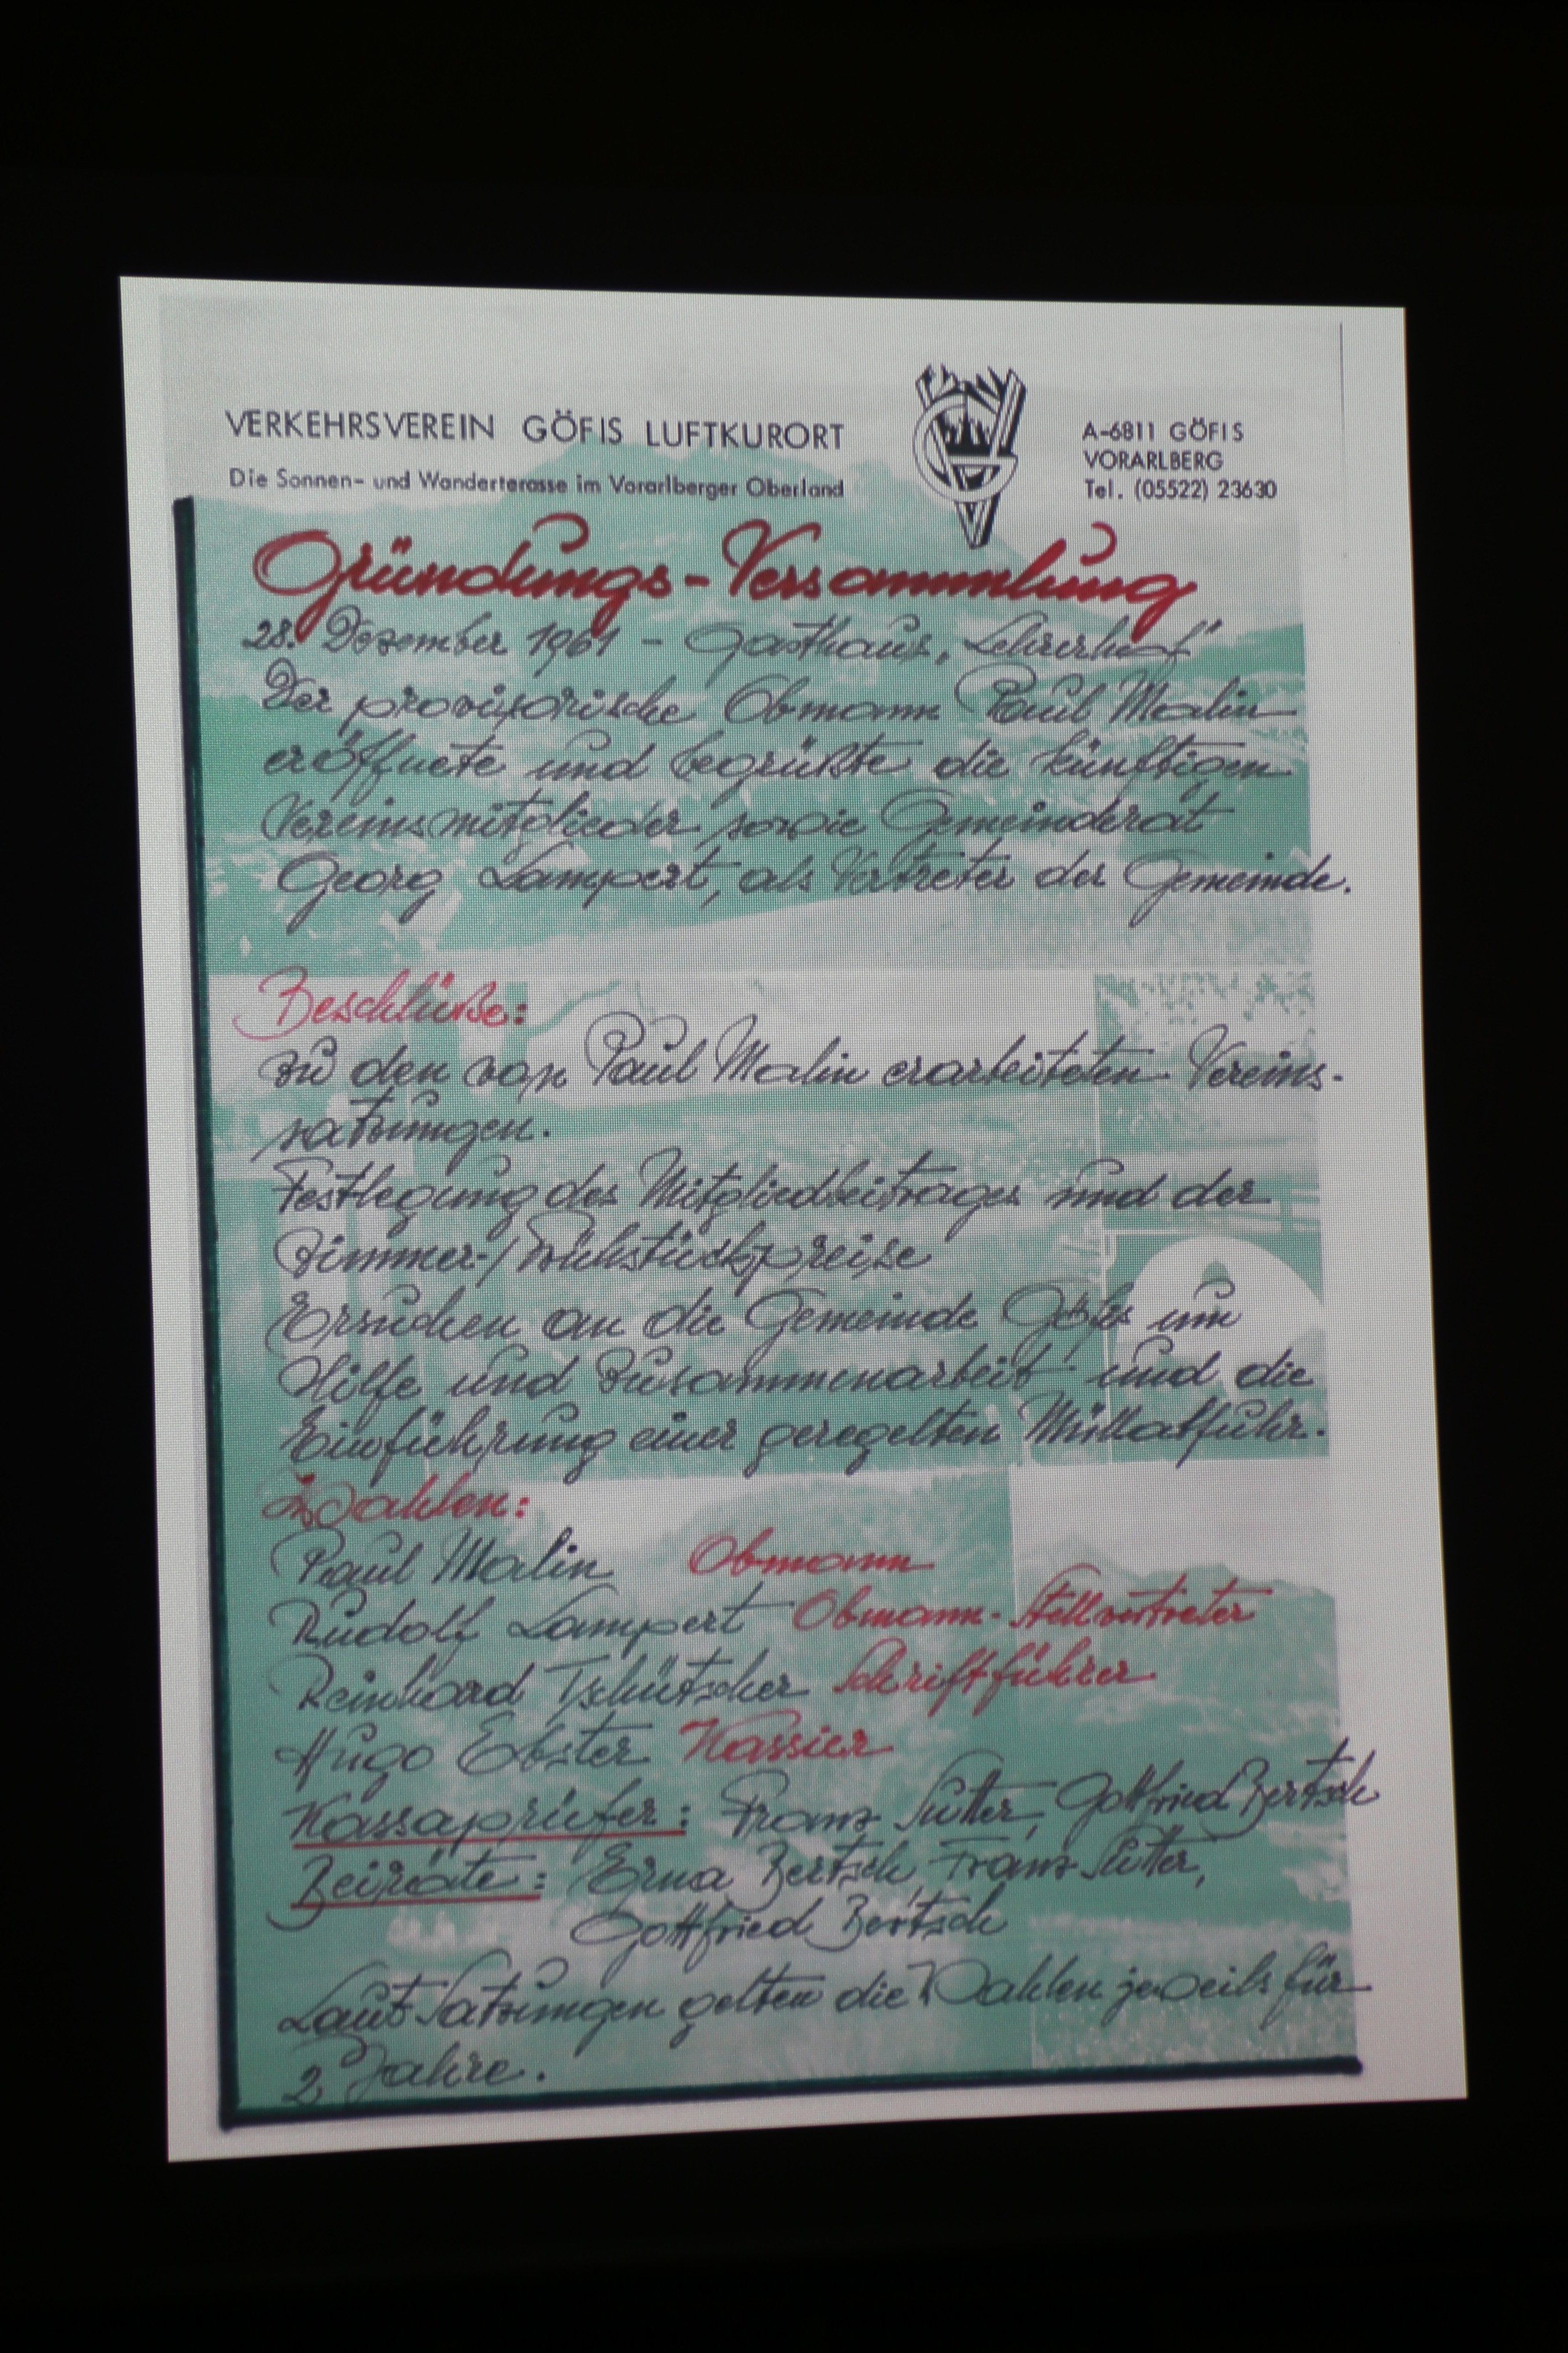 VERKEHRSVEREIN GÖFIS LUFTKURORT
Die Sonnen- und Wanderterasse im Vorarlberger Oberland
A-6811 GÖFIS
VORARLBERG
Tel. (05522) 23630
Gründungs-Versammlung
28. Dezember 1961 - Gasthaus „Lehrerhof"
Der provisorische Obmann Paul Malin
eröffnete und begrüßte die künftigen
Vereinsmitglieder sowie Gemeinderat
Georg Lampert, als Vertreter der Gemeinde.
Beschlüße:
Zu den von Paul Malin erarbeiteten Vereins-
satzungen.
Festlegung des Mitgliedbeitrages und der
Zimmer-/Frühstückspreise
Ersuchen an die Gemeinde Göfis um
Hilfe und Zusammenarbeit und die
Einführung einer geregelten Müllabfuhr.
Wahlen:
Paul Malin Obmann
Rudolf Lampert Obmann-Stellvertreter
Reinhard Tschütscher Schriftführer
Hugo Ebster Kassier
Kassaprüfer: Franz Sutter, Gottfried Bertsch
Beiräte: Erna Bertsch, Franz Sutter,
Gottfried Bertsch
Laut Satzungen gelten die Wahlen jeweils für
2 Jahre.